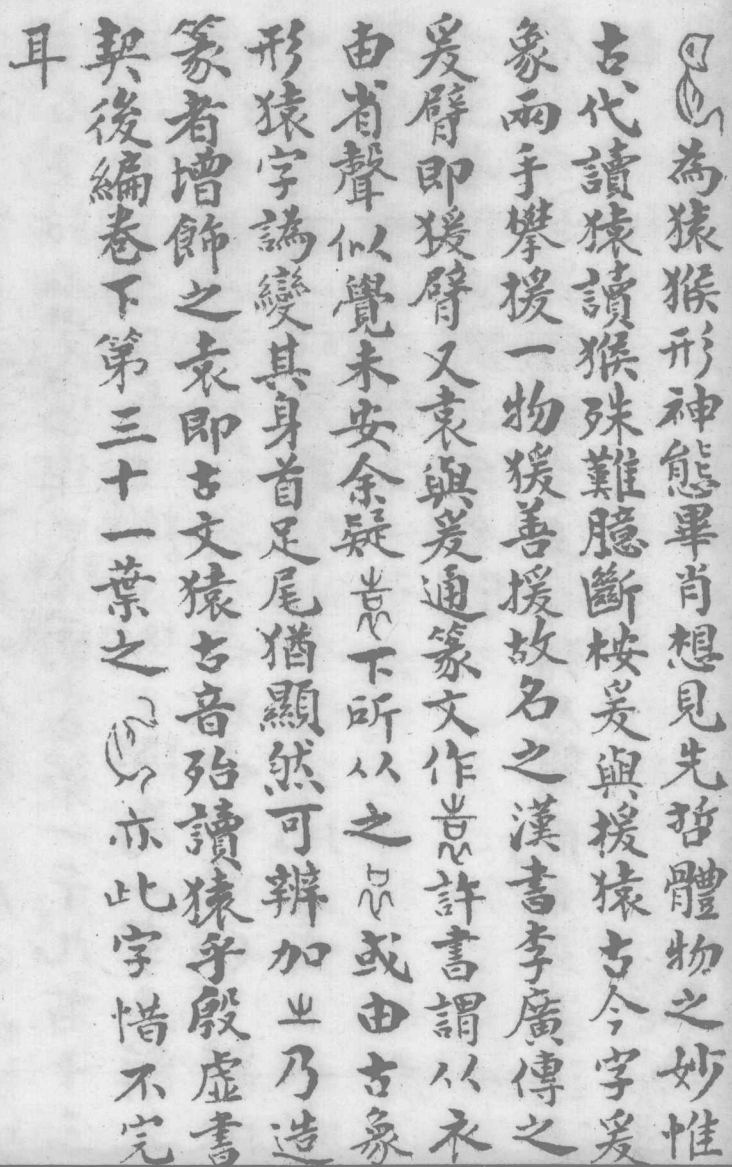 為猿猴形神態畢肖想見先哲體物之妙惟
古代讀猿讀猴殊難臆斷桉爰與援猿古今字爰
象兩手攀援一物猨善援故名之漢書李廣傳之
爰臂即猨臂又袁與爰通篆文作許書謂从衣
叀省聲似覺未安余疑下所从之或由古象
形猿字譌變其身首足尾猶顯然可辨加乃造
篆者增飾之袁即古文猿古音殆讀猿乎殷虛書
契後編卷下第三十一葉之亦此字惜不完
耳